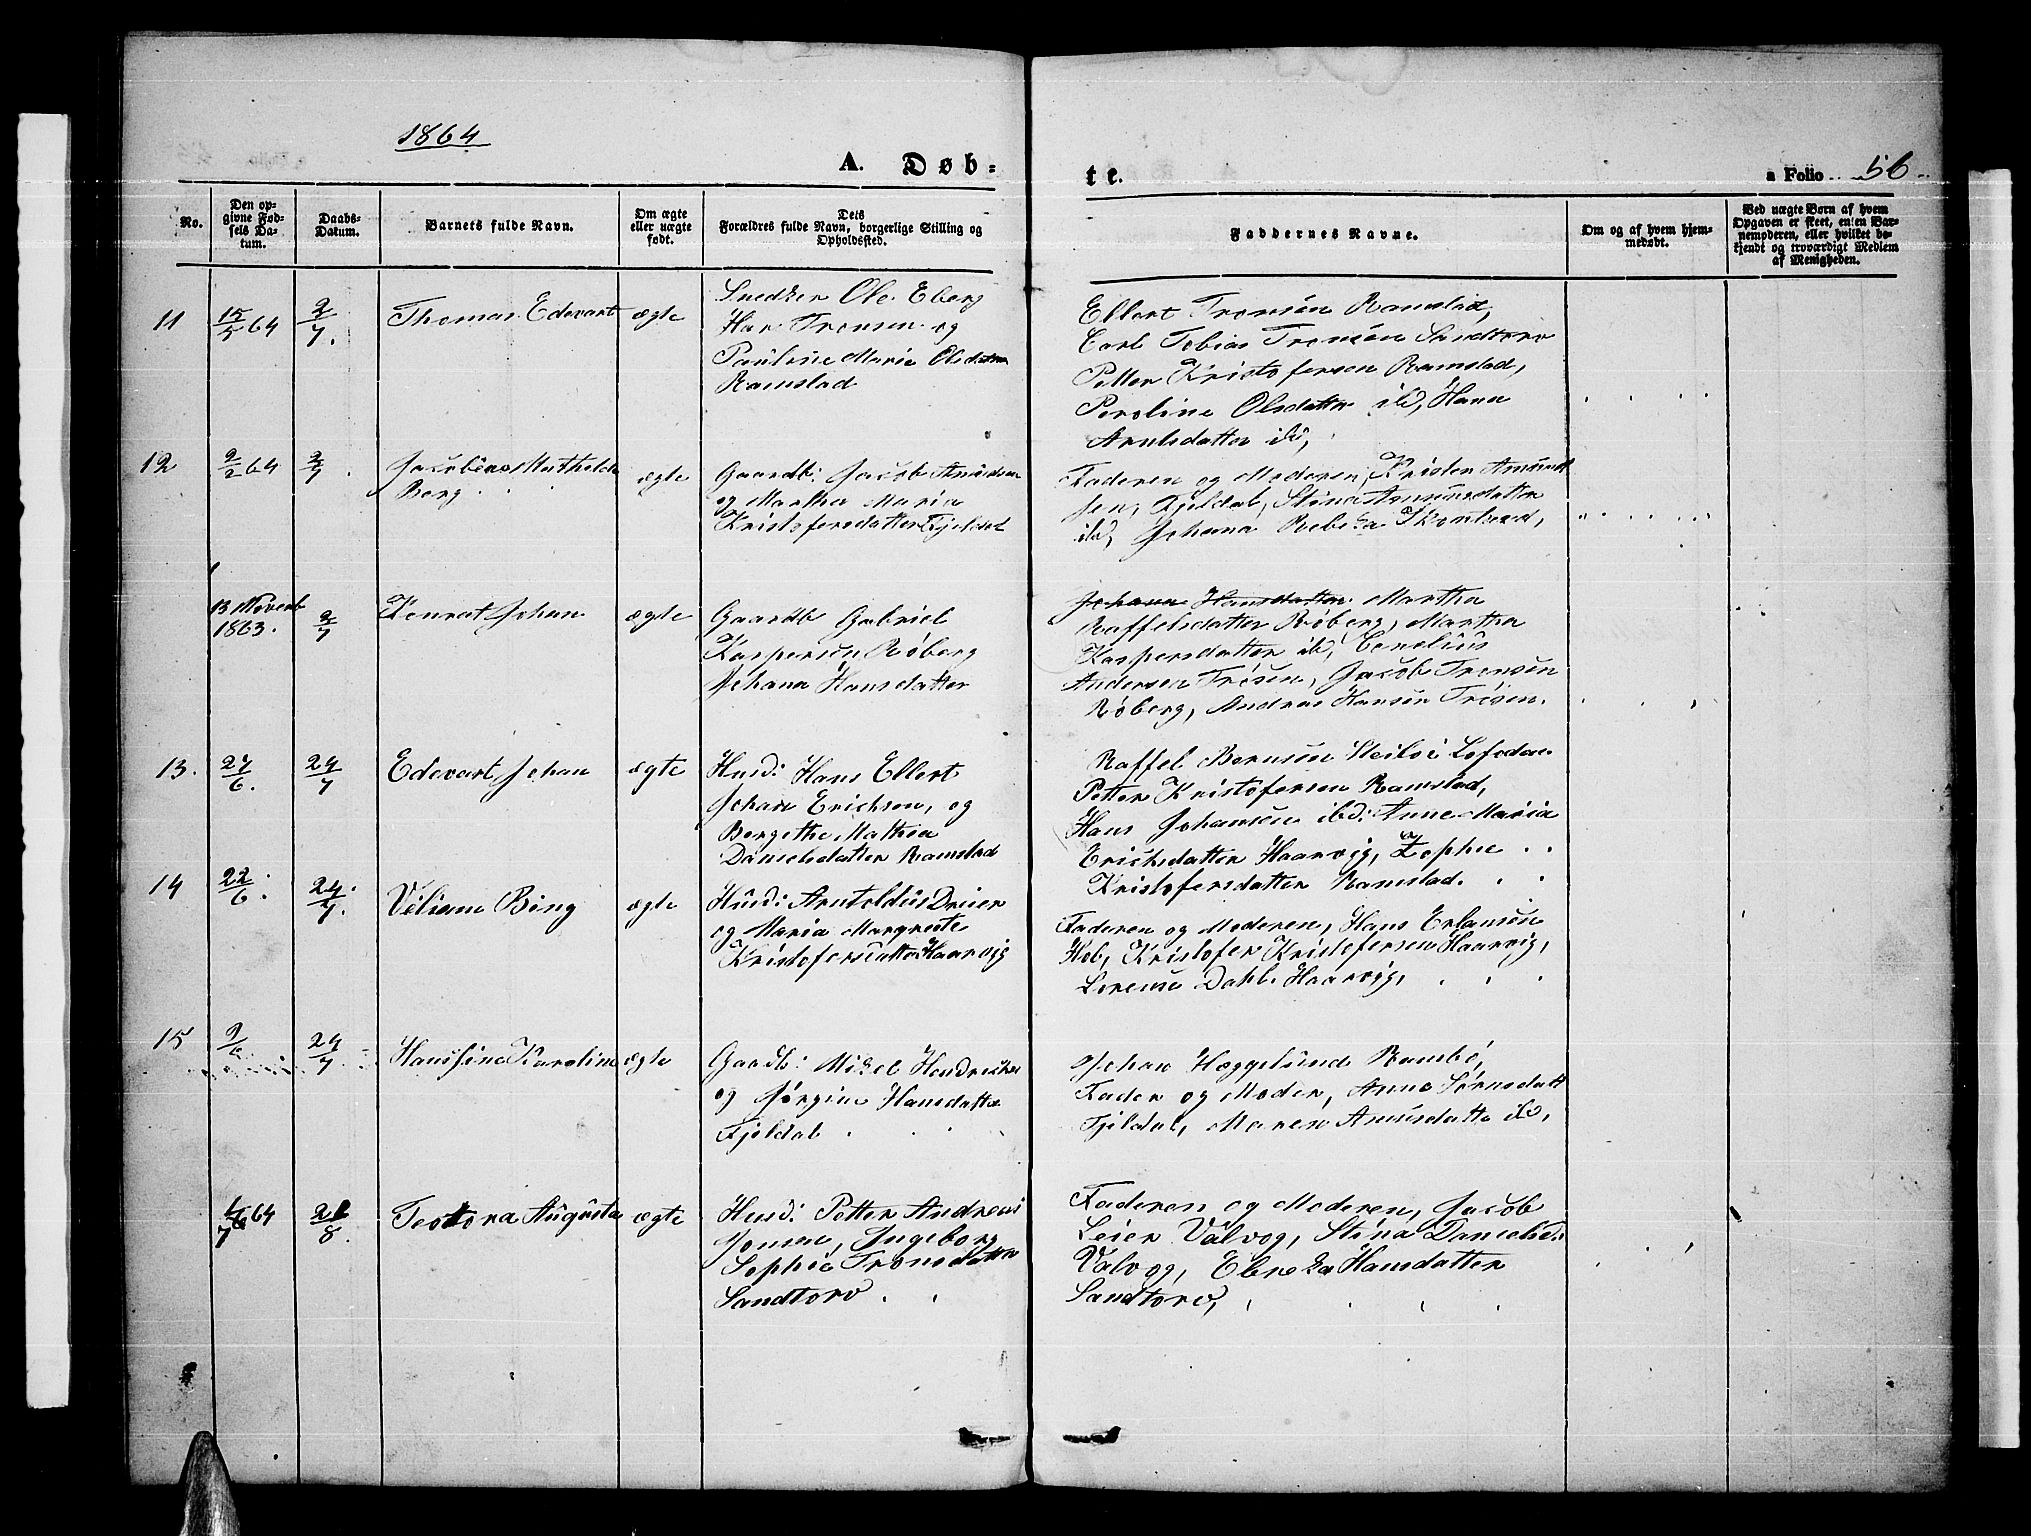 1864
A. Døb=
te.
a Folio 56
No.
Den op-
givne Fød-
sels Da-
tum.
Daabs-
Datum.
Barnets fulde Navn.
Om ægte
eller uægte
født.
Dets
Forældres fulde Navn, borgerlige Stilling og
Opholdssted.
Faddernes Navne.
Om og af hvem hjem-
medøbt.
Ved uægte Børn af hvem
Opgaven er skeet, enten Bar-
nemoderen, eller hvilket be-
kjendt og troværdigt Medlem
af Menigheden.
11
15/5 64
2/7.
Thomas Edevart
ægte
Snedker Ole Eberg
Han Tronsen og
Pauline Maria Olsdatter
Ramstad
Ellert Tronsen Ramstad,
Carl Tobias Tronsen Sandtorv
Petter Kristofersen Ramstad,
Peroline Olsdatter ibd, Hanna
Arntsdatter ibd,
12
2/2 64
2/7.
Jacobine Mathilde
Berg
ægte
Gaardb: Jacob Amundsen
og Martha Maria
Kristofersdatter Fjeldal
Faderen og Moderen, Kristen Amund
sen, Fjeldal, Stina Amundsdatter
ibd, Johana Rebeka
13 Novemb
1863.
2/7
Konrat Johan
ægte
Gaardb Gabriel
Kaspersen Røberg
Johana Hansdatter
Johana Hansdatter Martha
Raffelsdatter Røberg, Martha
Kaspersdatter ibd, Cornelius
Andersen Trøsen, Jacob Tronsen
Røberg, Andreas Hansen Trøsen.
13.
27/6.
24/7
Edevart Johan
ægte
Husd: Hans Ellert
Johan Erichsen, og
Bergethe Mathea
Danielsdatter Ramstad
Raffel Bernsen Lofoden
Petter Kristofersen Ramstad,
Hans Johansen ibd: Anne Maria
Erichsdatter Haarvig, Zophie
Kristofersdatter Ramstad.
14
22/6.
24/7.
Viliam Bing
ægte
Husd: Arntoldus Drier
og Maria Margrete
Kristofersdatter Haarvig
Faderen og Moderen, Hans Erlansen
Hol, Kristofer Kristofersen Haarvig,
Lorense Dahl Haarvig,
15
9/6
24/7
Hansine Karoline
ægte
Gaardb: Mikel Hendriksen
og Jørgine Hansdatter
Fjeldal
Johan Hæggelund Rambø,
Fader og Moder, Anne Sørnsdatt
Fjeldal, Maren Amundsdatte ibd,
64
21/8.
Teodora Augusta
ægte
Husd: Petter Andreas
Jonsen, Ingeborg
Sophie Tronsdatter
Sandtorv
Faderen og Moderen, Jacob
Leier Valvog, Stina Danielsd.
Valvog, Ebrekka Hansdatter
Sandtorv,